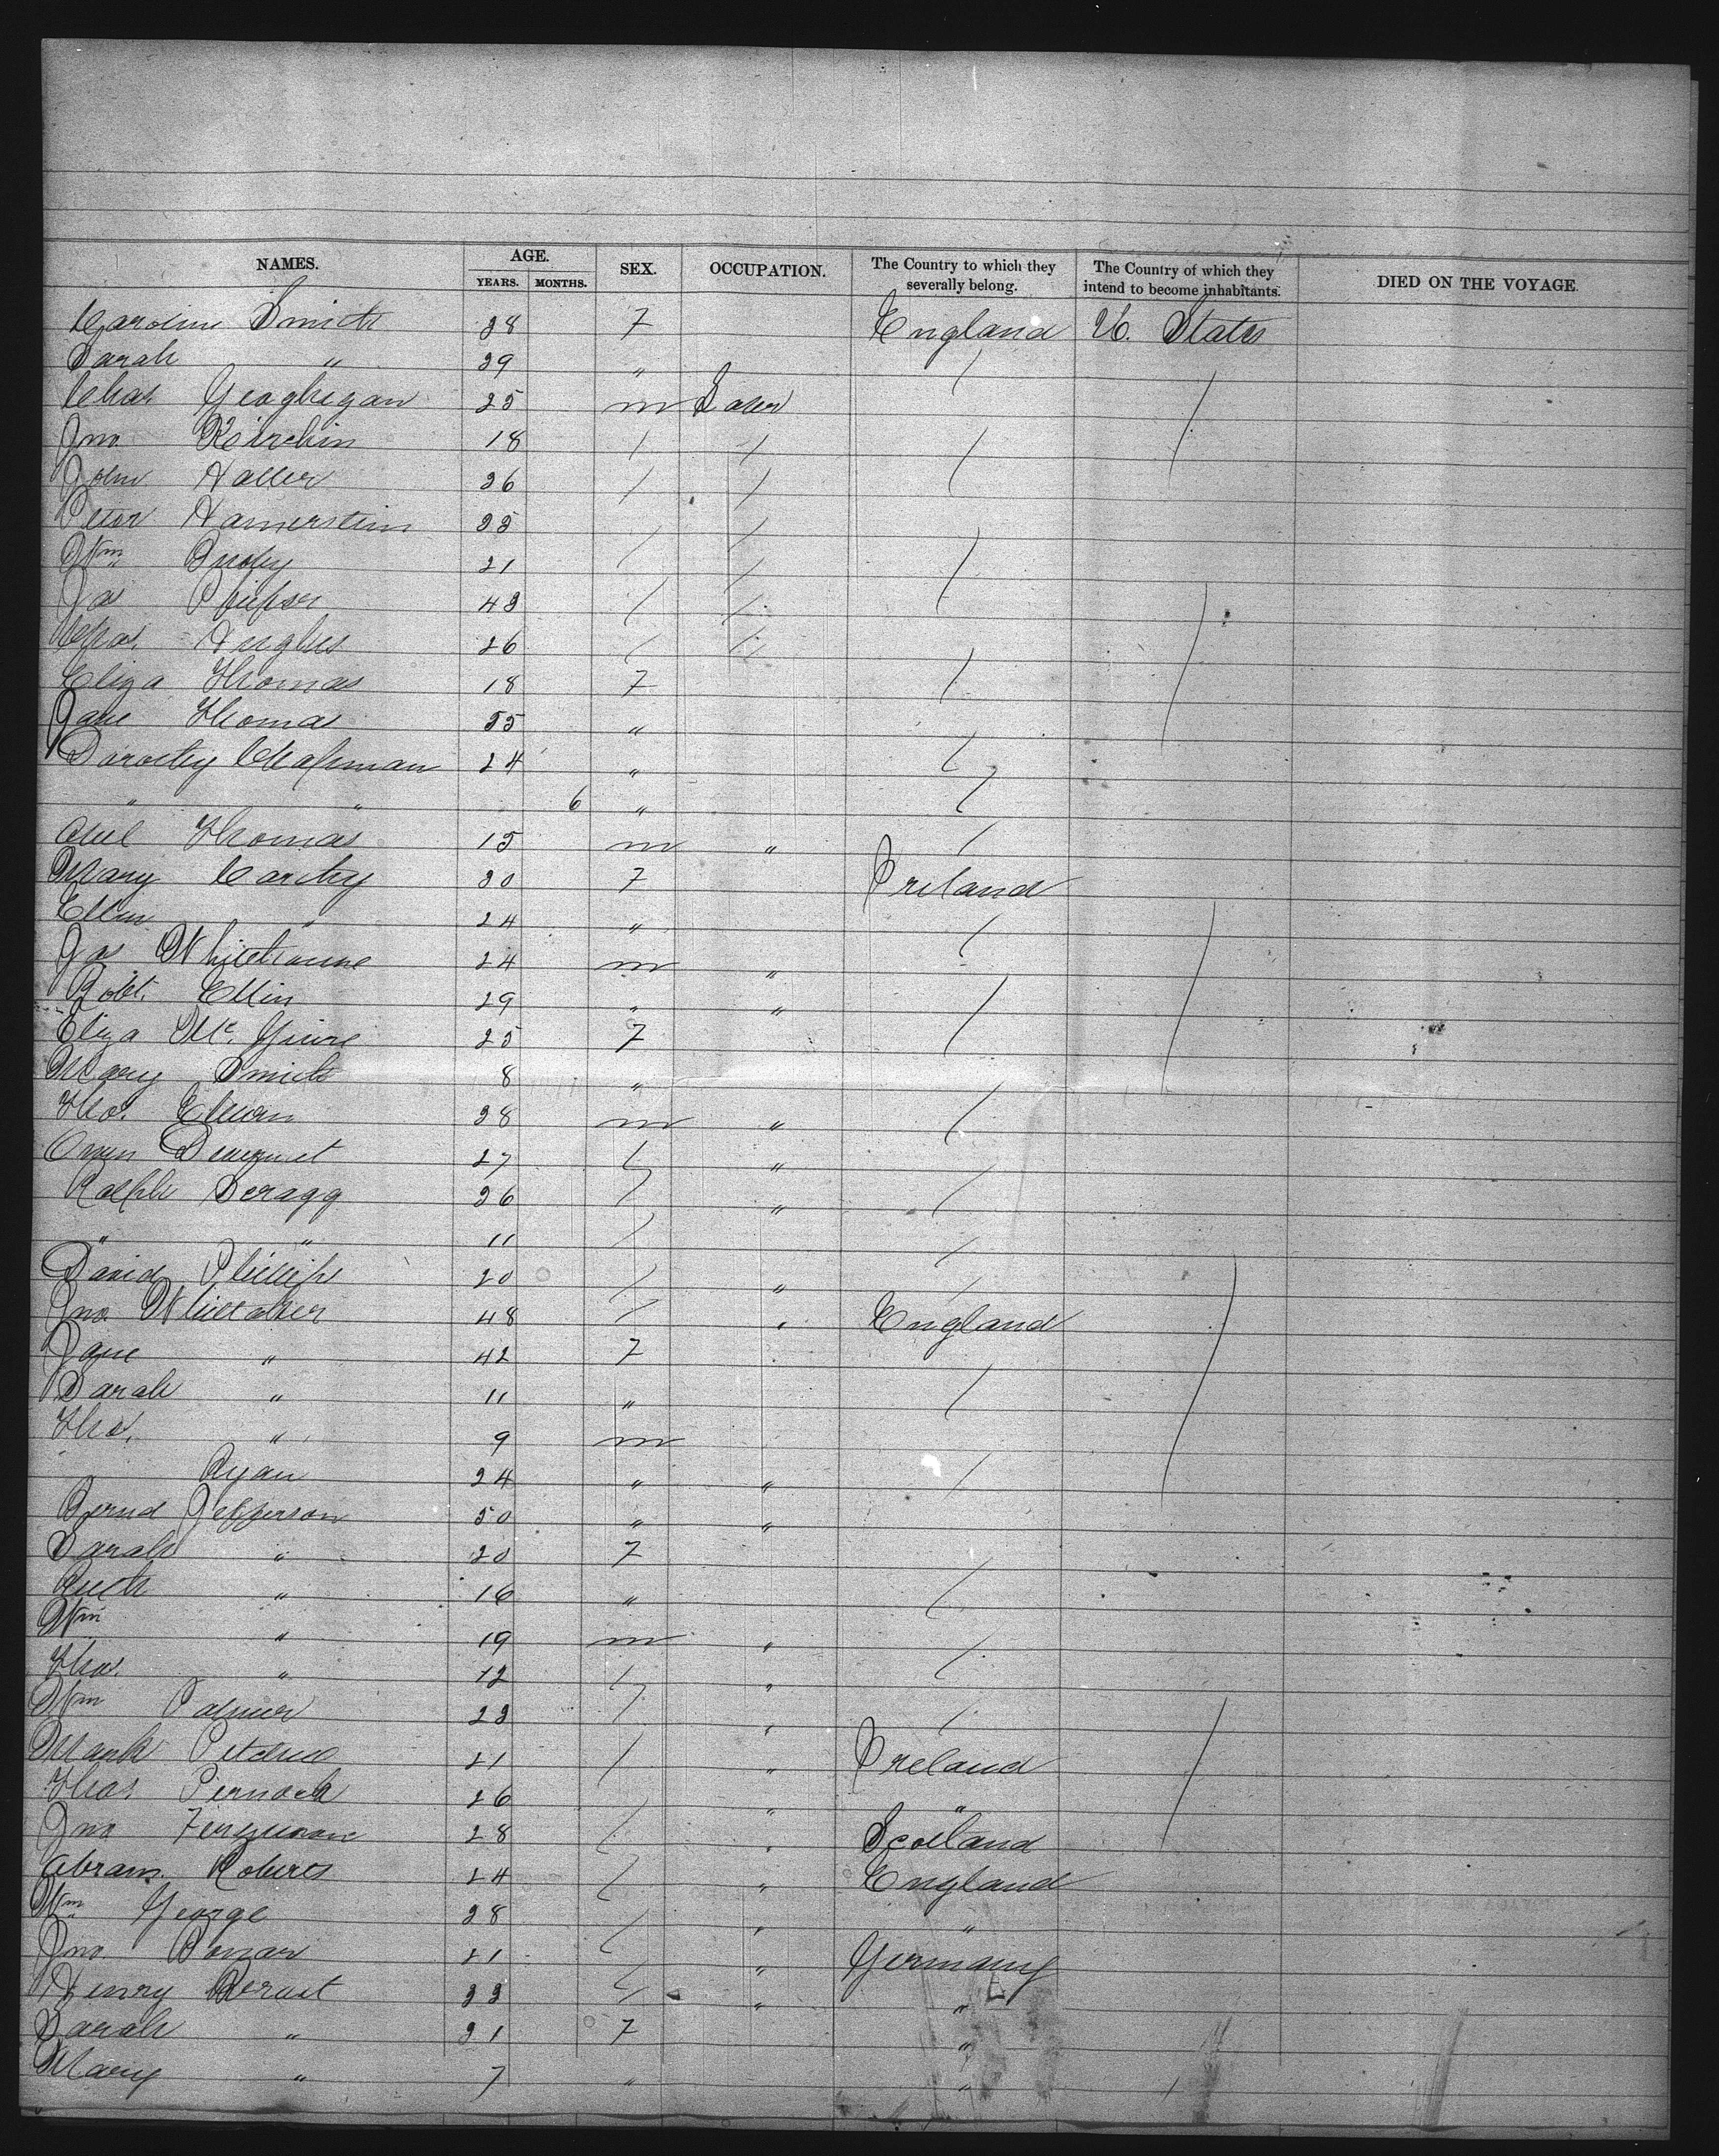 NAMES. AGE. YEARS. MONTHS. SEX. OCCUPATION. The Country to which they severally belong. The Country of which they intend to become inhabitants. DIED ON THE VOYAGE.
Caroline Smith 28 F England U. States
Sarah " 29 "
Chas. Geoghegan 25 m
Jno. 18
John Haller 26
Peter Hamerstein
Wm 21
Jas 42
Chas. Hughes 26
Eliza Thomas 18 F
Jane Thomas 55 "
Dorothy Chapman 24 "
" " 6 "
Thomas 15 m "
Mary Carthy 20 F Ireland
Ellen " 24 "
Jas Whitehouse 24 m "
Robt. Ellin 29 " "
Eliza Mc. Guire 25 F
Mary Smith 8 "
Tho. 28 m "
Owen 27 "
Ralph Scragg 26 "
" " 11
David Phillips 20 "
Jno. Whittaker 48 " England
Jane " 42 F
Sarah " 11 "
Tho. " 9 m
Ryan 24 " "
Bernd Jefferson 50 " "
Sarah " 20 F
Ruth " 16 "
Wm " 19 m "
Tho. " 12 "
Wm Palmer 22 "
Mark 21 " Ireland
Thos. 26 " "
Jno Ferguson 28 " Scotland
Abram Roberts 24 " England
Wm George 28 " "
Jno. 21 " Germany
Henry 22 " "
Sarah " 21 F "
Mary " 7 " "